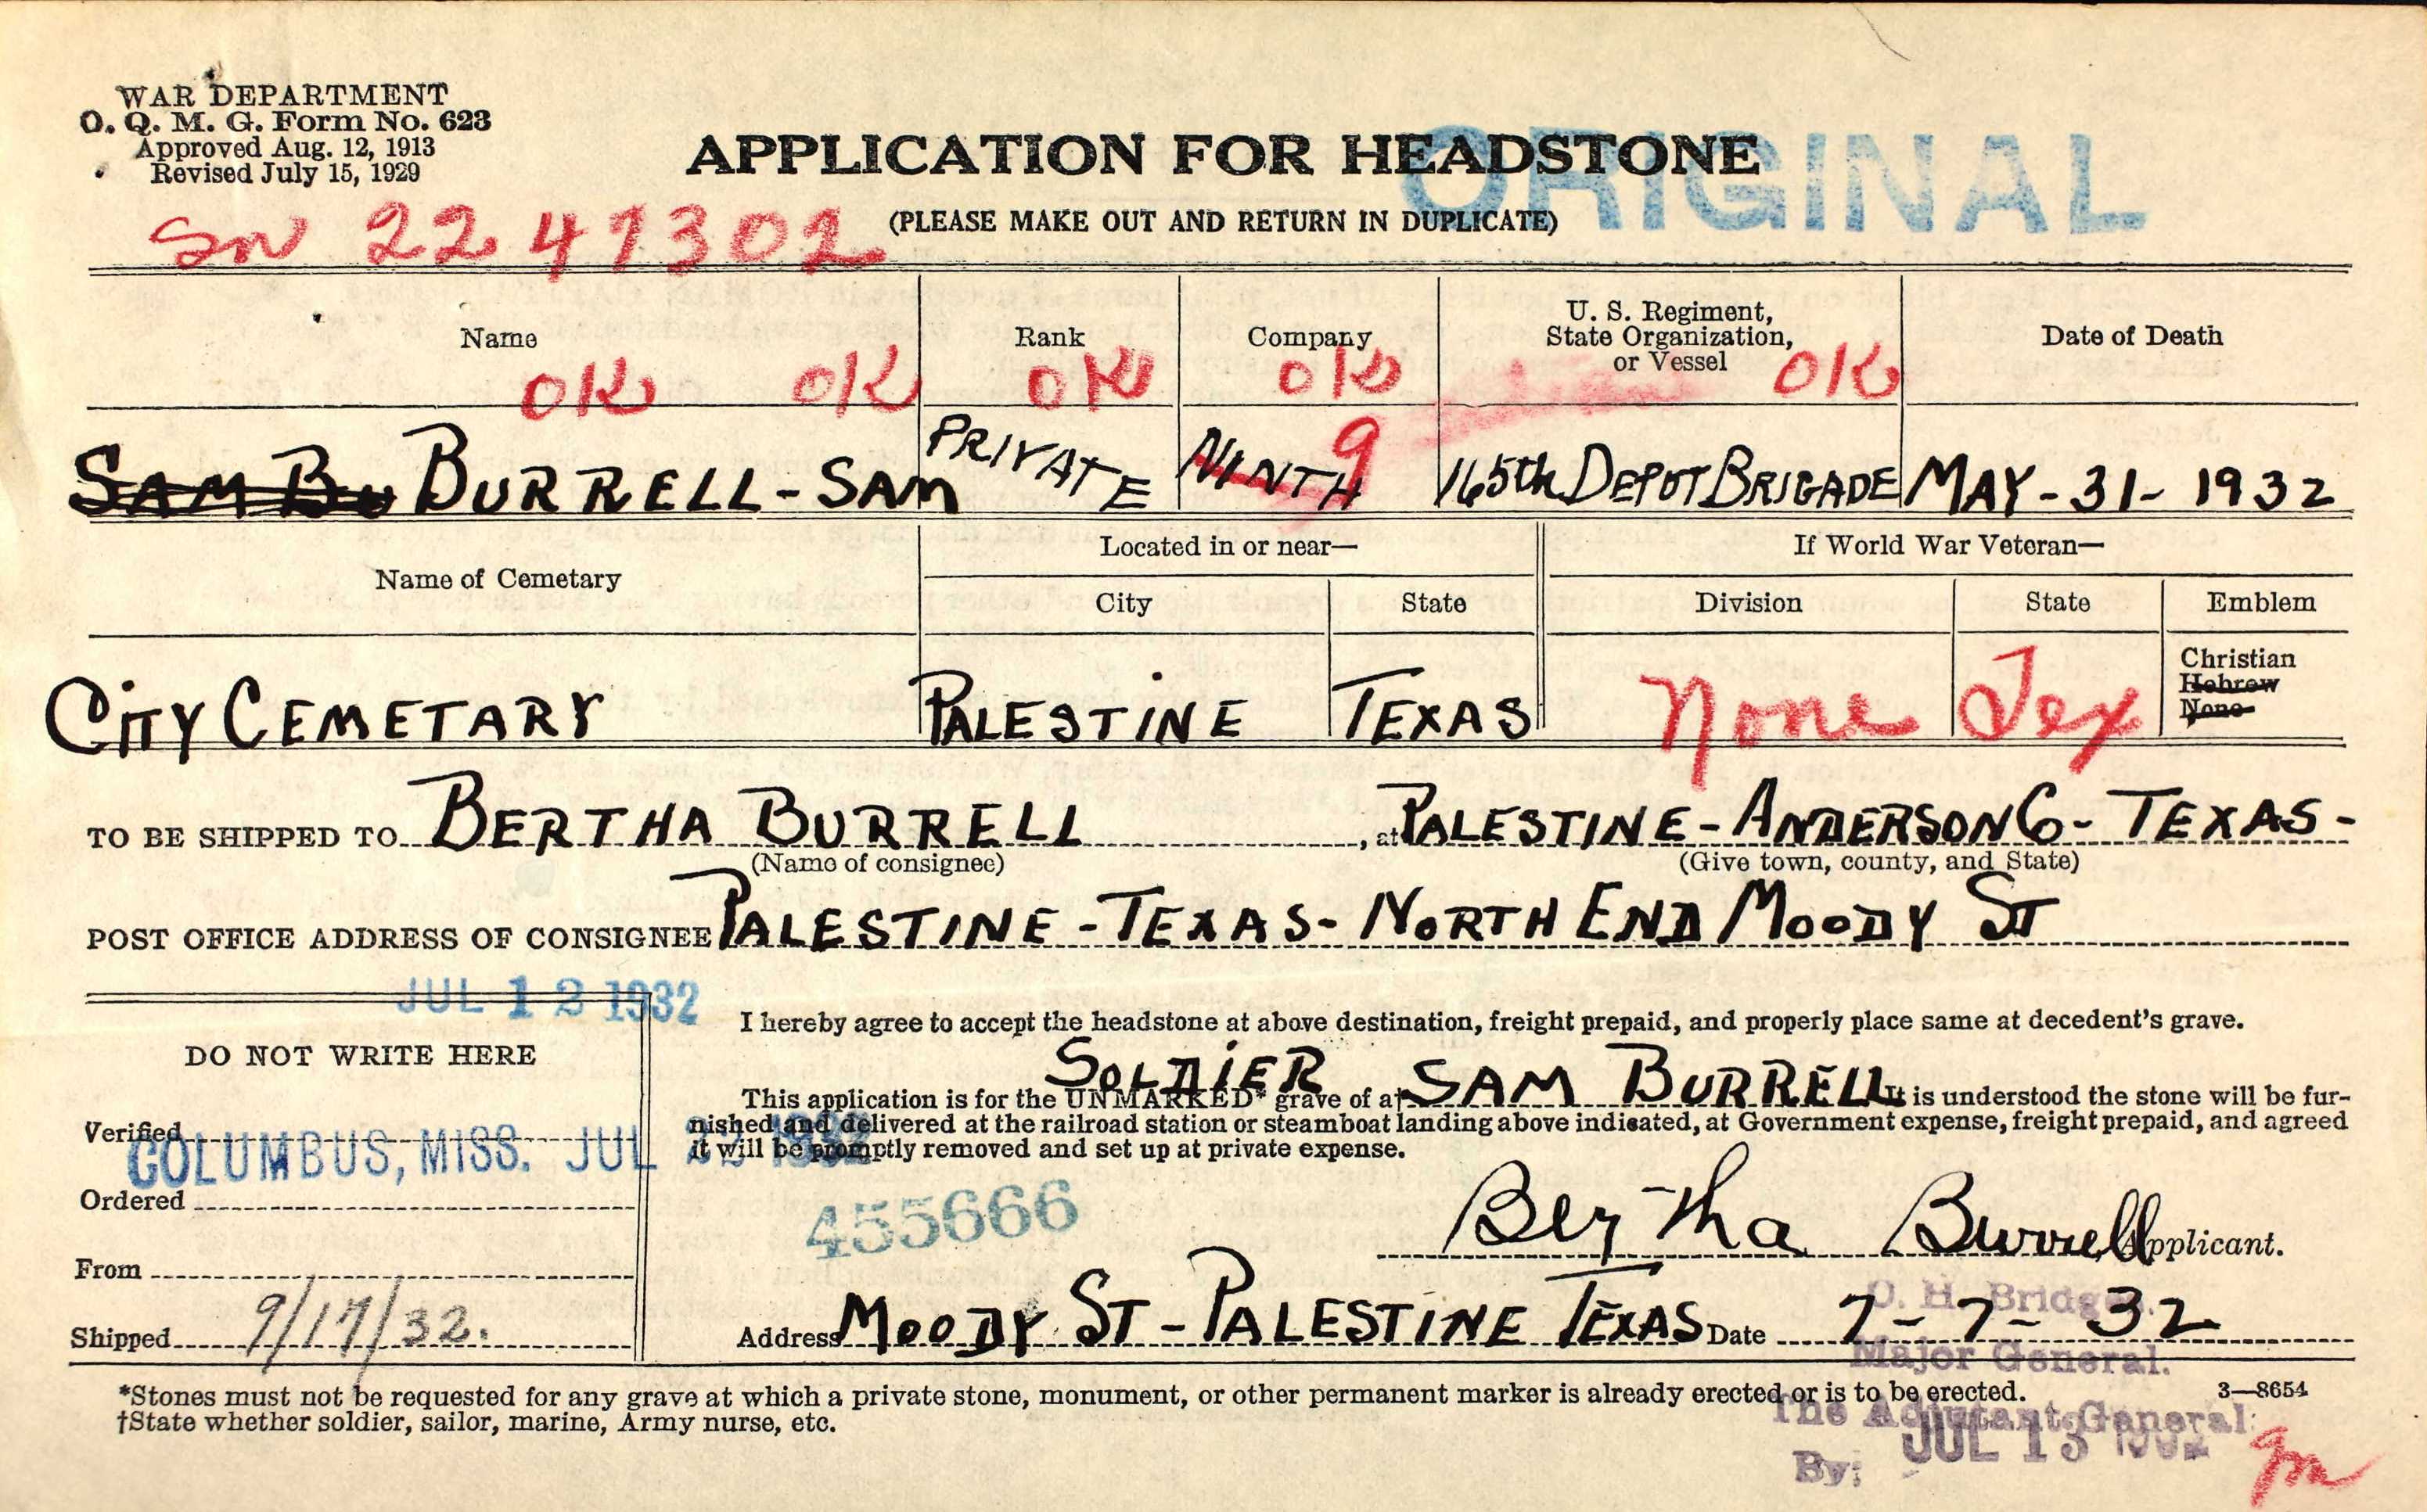 WAR DEPARTMENT
O. Q. M. G. Form No. 623
Approved Aug. 12, 1913
Revised July 15, 1929
APPLICATION FOR HEADSTONE
ORIGINAL
(PLEASE MAKE OUT AND RETURN IN DUPLICATE)
SN 2247302
Name
Rank
Company
U. S. Regiment,
State Organization,
or Vessel
Date of Death
OK OK OK OK OK
SAM BU BURRELL-SAM
PRIVATE
NINTH 9
165th DEPOT BRIGADE
MAY-31-1932
Name of Cemetary
Located in or near—
If World War Veteran—
City
State
Division
State
Emblem
Christian
Hebrew
None
CITY CEMETARY
PALESTINE
TEXAS
None
Tex
TO BE SHIPPED TO BERTHA BURRELL, at PALESTINE-ANDERSON CO-TEXAS-
(Name of consignee)
(Give town, county, and State)
POST OFFICE ADDRESS OF CONSIGNEE PALESTINE-TEXAS-NORTH END MOODY ST
JUL 12 1932
DO NOT WRITE HERE
Verified
COLUMBUS, MISS. JUL 22 1932
Ordered
From
Shipped 9/17/32.
I hereby agree to accept the headstone at above destination, freight prepaid, and properly place same at decedent's grave.
SOLDIER
This application is for the UNMARKED* grave of a† SAM BURRELL It is understood the stone will be fur-
nished and delivered at the railroad station or steamboat landing above indicated, at Government expense, freight prepaid, and agreed
it will be promptly removed and set up at private expense.
455666
Bertha Burrell Applicant.
Address MOODY ST-PALESTINE TEXAS Date 7-7-32
O. H. Bridges.
Major General.
The Adjutant General.
By:
JUL 13 1932
*Stones must not be requested for any grave at which a private stone, monument, or other permanent marker is already erected or is to be erected.
†State whether soldier, sailor, marine, Army nurse, etc.
3—8654